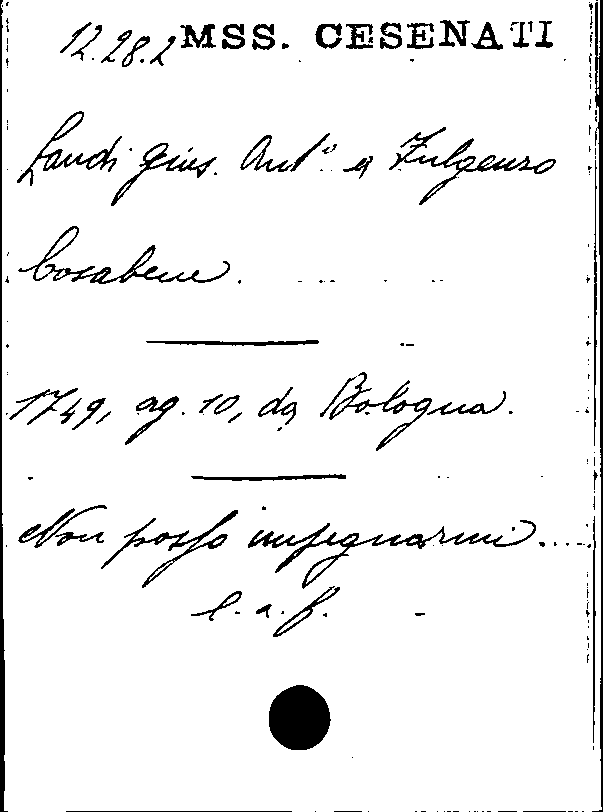 12.28.2 MSS. CESENATI
Landi Gius. Ant.° a Fulgenzo
Cosabene.
1749, ag. 10, da Bologna.
Non posso impegnarmi....
l. a. f.